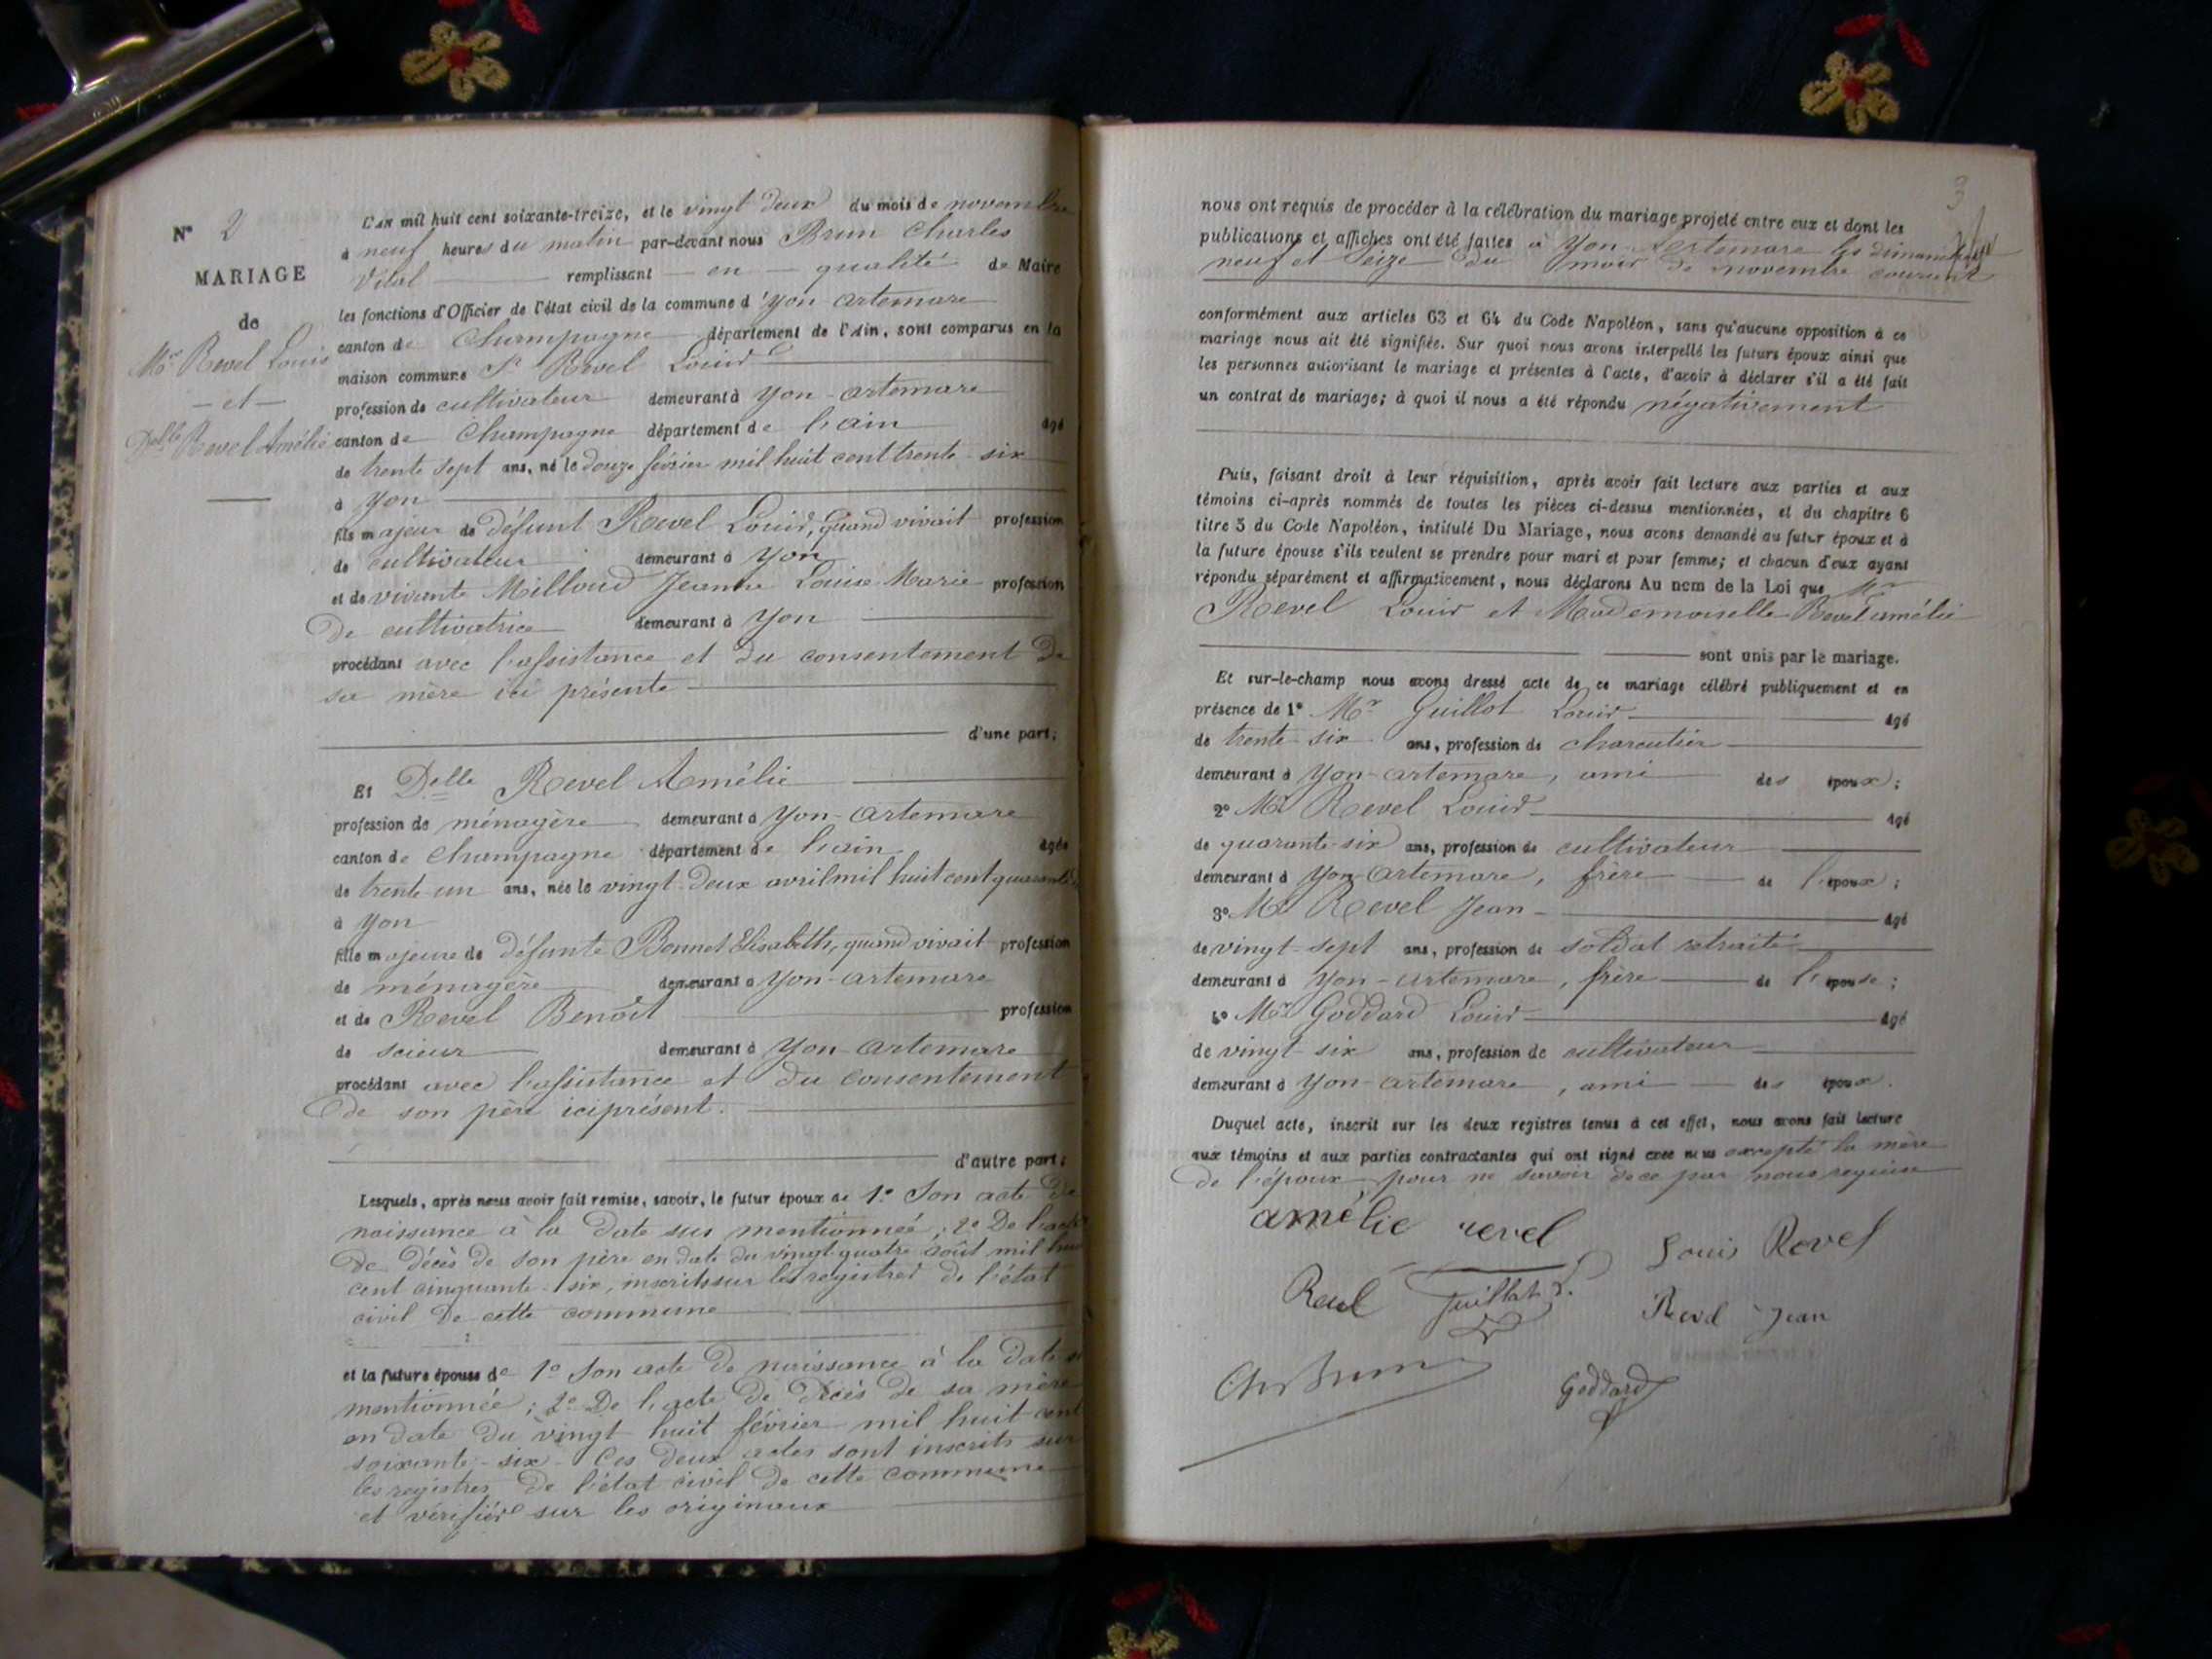 N° 2
MARIAGE
de
Mr Revel Louis
— et —
Delle Revel Amélie
L'an mil huit cent soixante-treize, et le vingt deux du mois de novembre
à neuf heures du matin par-devant nous Brun Charles
Vital remplissant en qualité de Maire
les fonctions d'Officier de l'état civil de la commune d'Yon artemare
canton de Champagne département de l'Ain, sont comparus en la
maison commune Sr Revel Louis
profession de cultivateur demeurant à Yon-artemare
canton de Champagne département de l'ain âgé
de trente sept ans, né le douze février mil huit cent trente six
à Yon
fils majeur de défunt Revel Louis, quand vivait profession
de cultivateur demeurant à Yon
et de vivante Milloud Jeanne Louise Marie profession
De cultivatrice demeurant à Yon
procédant avec l'assistance et du consentement de
sa mère ici présente
d'une part;
Et Delle Revel Amélie
profession de ménagère demeurant à Yon-artemare
canton de Champagne département de l'ain âgée
de trente un ans, née le vingt-deux avril mil huit cent quarante
à Yon
fille majeure de défunte Bonnet Elisabeth, quand vivait profession
de ménagère demeurant à Yon-artemare
et de Revel Benoît profession
de scieur demeurant à Yon-artemare
procédant avec l'assistance et du consentement
De son père ici présent.
d'autre part;
Lesquels, après nous avoir fait remise, savoir, le futur époux de 1° Son acte de
naissance à la date sus mentionnée; 2° De l'acte
De décès de son père en date du vingt-quatre août mil huit
cent cinquante-six, inscrits sur les registres de l'état
civil de cette commune
et la future épouse de 1° Son acte de naissance à la date
mentionnée; 2° De l'acte de Décès de sa mère
en date du vingt-huit février mil huit cent
soixante-six. Ces deux actes sont inscrits sur
les registres de l'état civil de cette commune
et vérifiés sur les originaux
3
nous ont requis de procéder à la célébration du mariage projeté entre eux et dont les
publications et affiches ont été faites à Yon-Artemare les dimanches
neuf et seize du mois de novembre courant
conformément aux articles 63 et 64 du Code Napoléon, sans qu'aucune opposition à ce
mariage nous ait été signifiée. Sur quoi nous avons interpellé les futurs époux ainsi que
les personnes autorisant le mariage et présentes à l'acte, d'avoir à déclarer s'il a été fait
un contrat de mariage; à quoi il nous a été répondu négativement
Puis, faisant droit à leur réquisition, après avoir fait lecture aux parties et aux
témoins ci-après nommés de toutes les pièces ci-dessus mentionnées, et du chapitre 6
titre 5 du Code Napoléon, intitulé Du Mariage, nous avons demandé au futur époux et à
la future épouse s'ils veulent se prendre pour mari et pour femme; et chacun d'eux ayant
répondu séparément et affirmativement, nous déclarons Au nom de la Loi que Mr
Revel Louis et Mademoiselle Revel amélie
sont unis par le mariage.
Et sur-le-champ nous avons dressé acte de ce mariage célébré publiquement et en
présence de 1° Mr Guillot Louis âgé
de trente-six ans, profession de charcutier
demeurant à Yon-artemare, ami des époux;
2° Mr Revel Louis âgé
de quarante-six ans, profession de cultivateur
demeurant à Yon-Artemare, frère de l'époux;
3° Mr Revel Jean âgé
de vingt-sept ans, profession de soldat retraité
demeurant à Yon-artemare, frère de l'épouse;
4° Mr Goddard Louis âgé
de vingt-six ans, profession de cultivateur
demeurant à Yon-artemare, ami des époux.
Duquel acte, inscrit sur les deux registres tenus à cet effet, nous avons fait lecture
aux témoins et aux parties contractantes qui ont signé avec nous excepté la mère
De l'époux, pour ne savoir de ce par nous requise
amélie revel
Louis Revel
Revel Guillot L.
Revel Jean
Ches Brun
Goddard